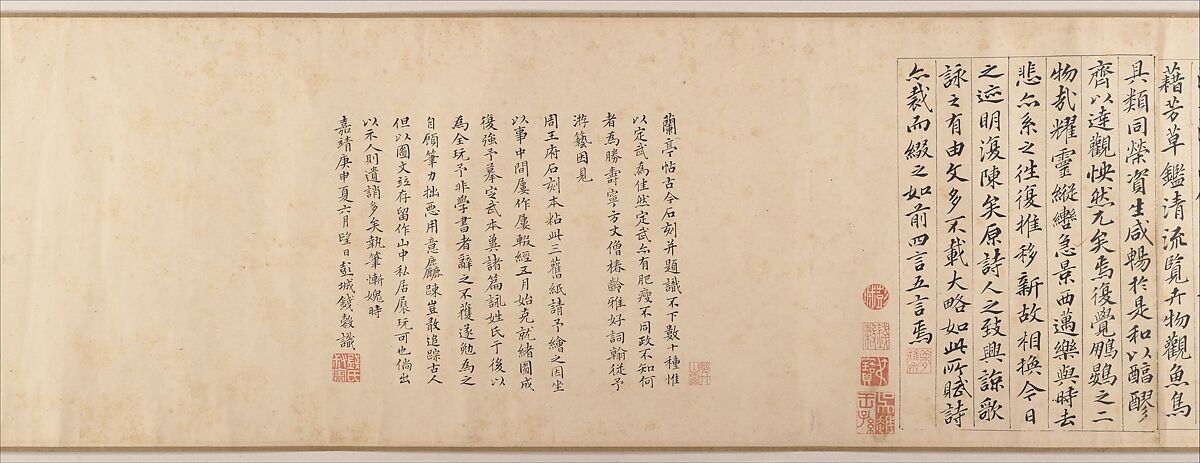 藉芳草鑑清流覽卉物觀魚鳥
具類同榮資生咸暢於是和以醇醪
齊以達觀怏然兀矣焉復覺鵬鷃之二
物哉耀靈縱轡急景西邁樂與時去
悲亦系之往復推移新故相換今日
之迹明復陳矣原詩人之致興諒歌
詠之有由文多不載大略如此所賦詩
亦裁而綴之如前四言五言焉
蘭亭帖古今石刻并題識不下數十種惟
以定武為佳然定武亦有肥瘦不同政不知何
者為勝壽寧方丈僧椿齡雅好詞翰從予
游藝因見
周王府石刻本粘此三舊紙請予繪之因坐
以事中間屢作屢輟經五月始克就緒圖成
後強予摹定武本兼諸篇詠姓氏于後以
為全玩予非學書者辭之不獲遂勉為之
自顧筆力拙惡用意麤疎豈敢追踪古人
但以圖文竝存留作山中私居展玩可也倘出
以示人則遺誚多矣執筆慚媿時
嘉靖庚申夏六月望日彭城錢穀識